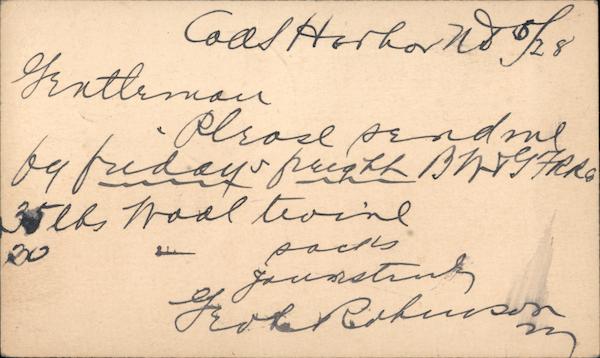 Coal Harbor ND 6/28
Gentleman
Please send me
by fridays freight B W & G F RR Co
35 lbs Wool twine
30 " sacks
Yours truly
Geo L Robinson